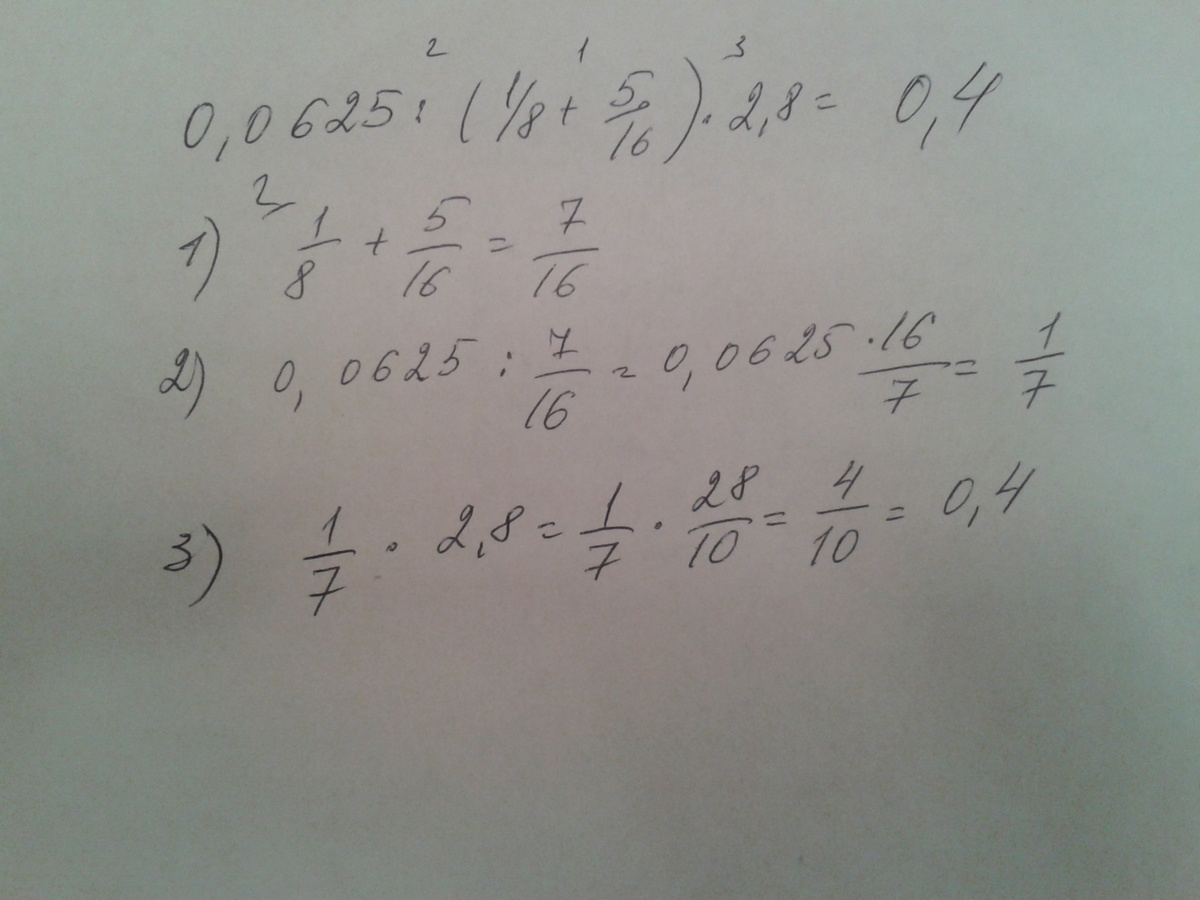 2 1 3
0,0625 : (1/8 + 5/16) · 2,8 = 0,4
1) 2 1/8 + 5/16 = 7/16
2) 0,0625 : 7/16 = 0,0625 · 16/7 = 1/7
3) 1/7 · 2,8 = 1/7 · 28/10 = 4/10 = 0,4